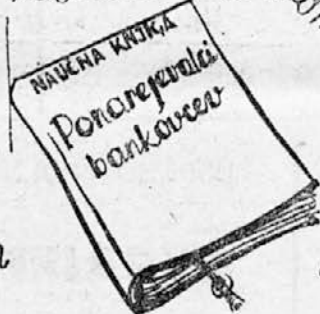 NAUČNA KNJIGA
Ponarejevalci
bankovcev